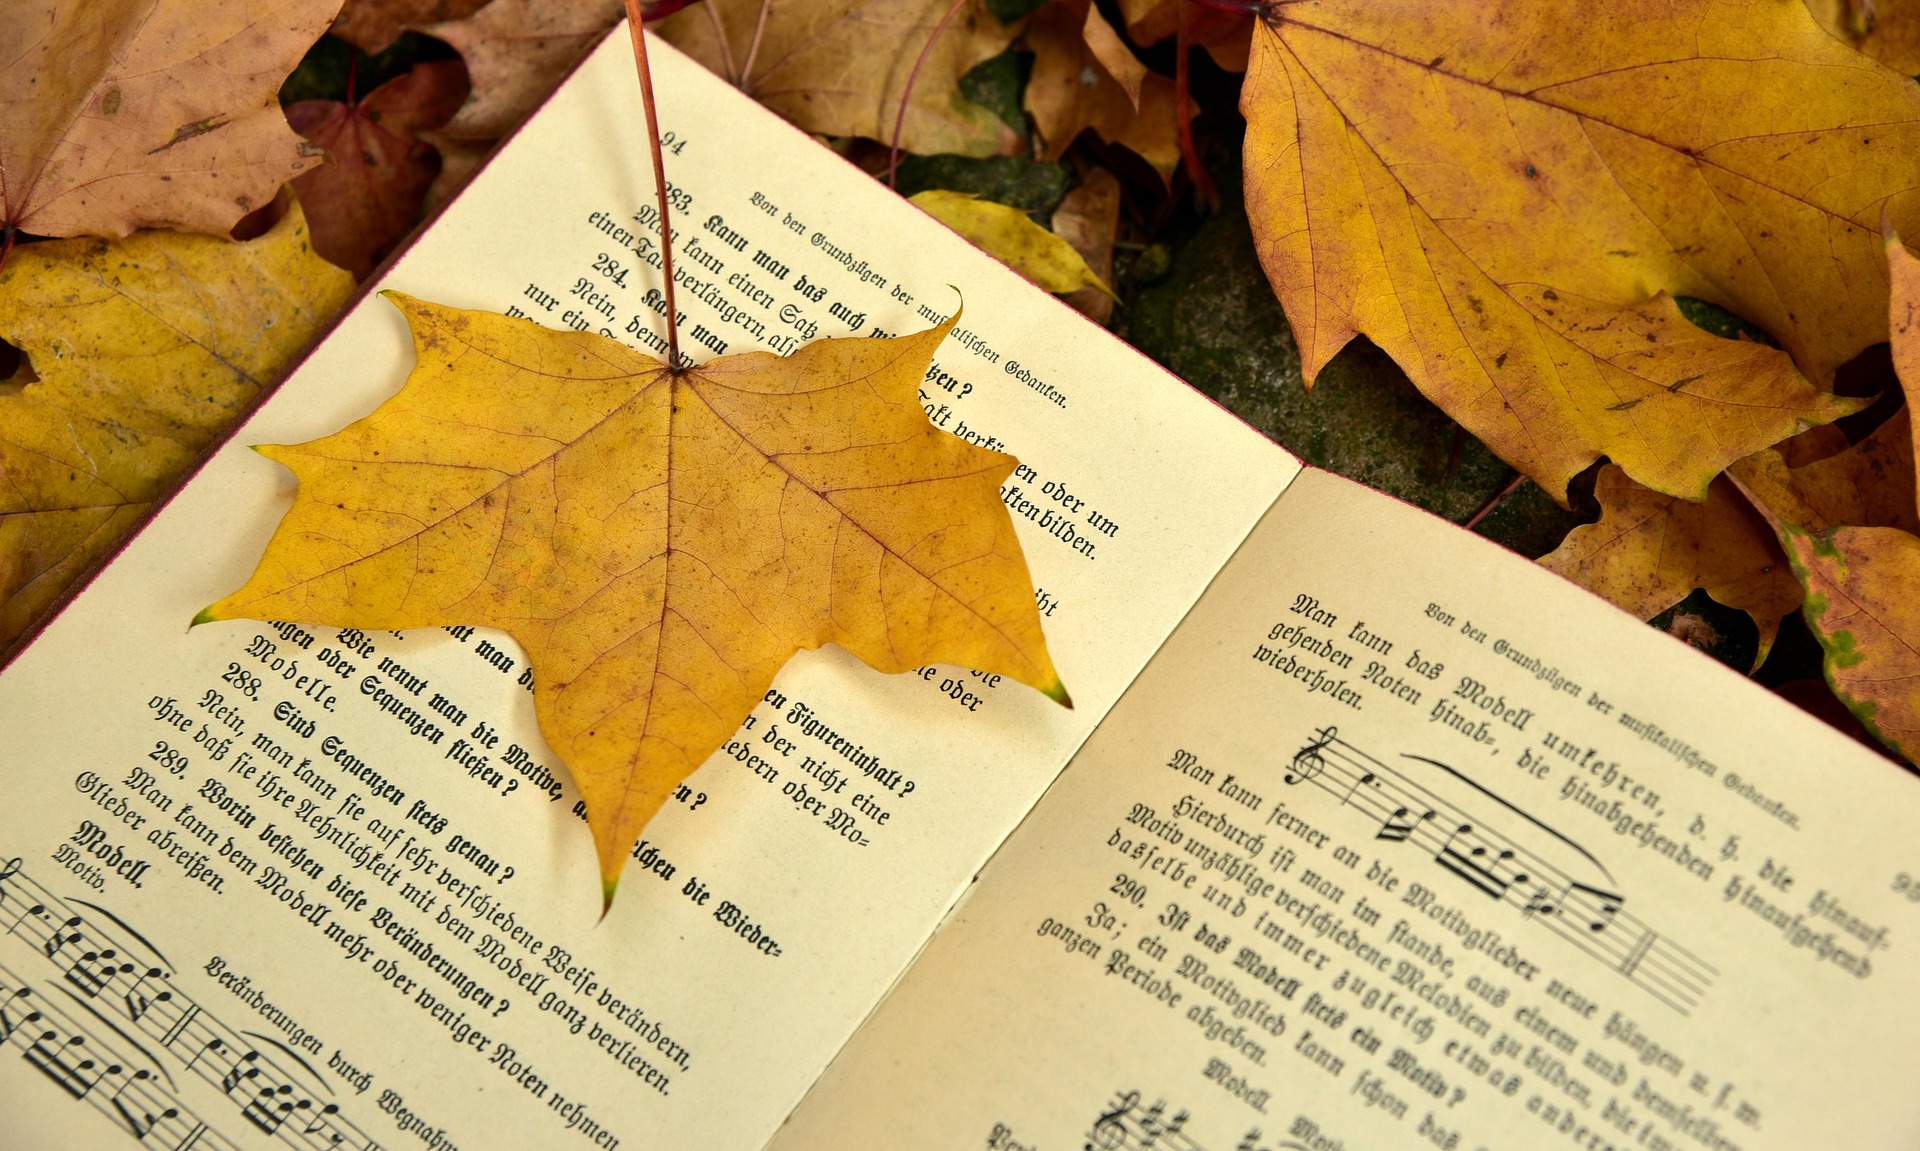 94
Von den Grundzügen der musikalischen Gedanken.
283. Kann man das auch mit tzen?
Man kann einen Satz Takt verkür en oder um
einen Takt verlängern, als akten bilden.
284. Kann man
Nein, denn
nur ein
ibt
die
ne oder
nt man di en Figureninhalt?
Wie nennt man die Motive, au elchen die Wieder=
ngen oder Sequenzen fließen?
Modelle.
288. Sind Sequenzen stets genau?
Nein, man kann sie auf sehr verschiedene Weise verändern,
ohne daß sie ihre Aehnlichkeit mit dem Modell ganz verlieren.
289. Worin bestehen diese Veränderungen?
Man kann dem Modell mehr oder weniger Noten nehmen
Glieder abreißen.
Modell.
Motiv.
Veränderungen durch Wegnahm
n der nicht eine
iedern oder Mo=
en?
Von den Grundzügen der musikalischen Gedanken.
95
Man kann das Modell umkehren, d. h. die hinauf=
gehenden Noten hinab=, die hinabgehenden hinaufgehend
wiederholen.
Man kann ferner an die Motivglieder neue hängen u. s. w.
Hierdurch ist man im stande, aus einem und demselben
Motiv unzählige verschiedene Melodien zu bilden, die im
dasselbe und immer zugleich etwas andere
290. Ist das Modell stets ein Motiv?
Ja; ein Motivglied kann schon das
ganzen Periode abgeben.
Modell.